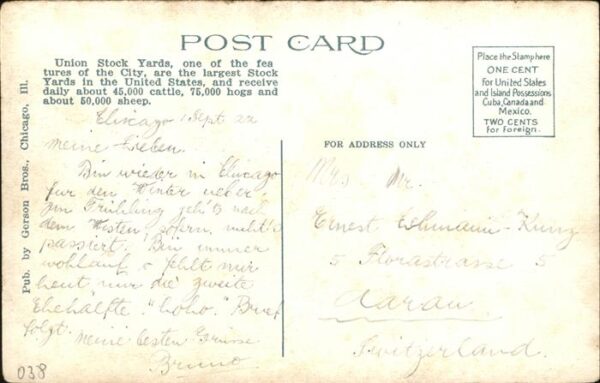 POST CARD
Union Stock Yards, one of the fea
tures of the City, are the largest Stock
Yards in the United States, and receive
daily about 45,000 cattle, 75,000 hogs and
about 50,000 sheep.
Place the Stamp here
ONE CENT
for United States
and Island Possessions
Cuba, Canada and
Mexico.
TWO CENTS
for Foreign.
Pub. by Gerson Bros., Chicago, Ill.
FOR ADDRESS ONLY
Chicago Sept 22
meine Lieben.
Bin wieder in Chicago
fur den Winter ueber.
zum Frühling geht's nach
dem Westen, sofern nicht's
passiert. Bin immer
wohlauf & fehlt mir
heut nur die zweite
Ehehälfte. "hoho." Brief
folgt.
meine besten Grüsse
Bruno
Mrs Mr.
Ernest Eshmann-Kunz
5 Florastrasse 5
Aarau
Switzerland.
038